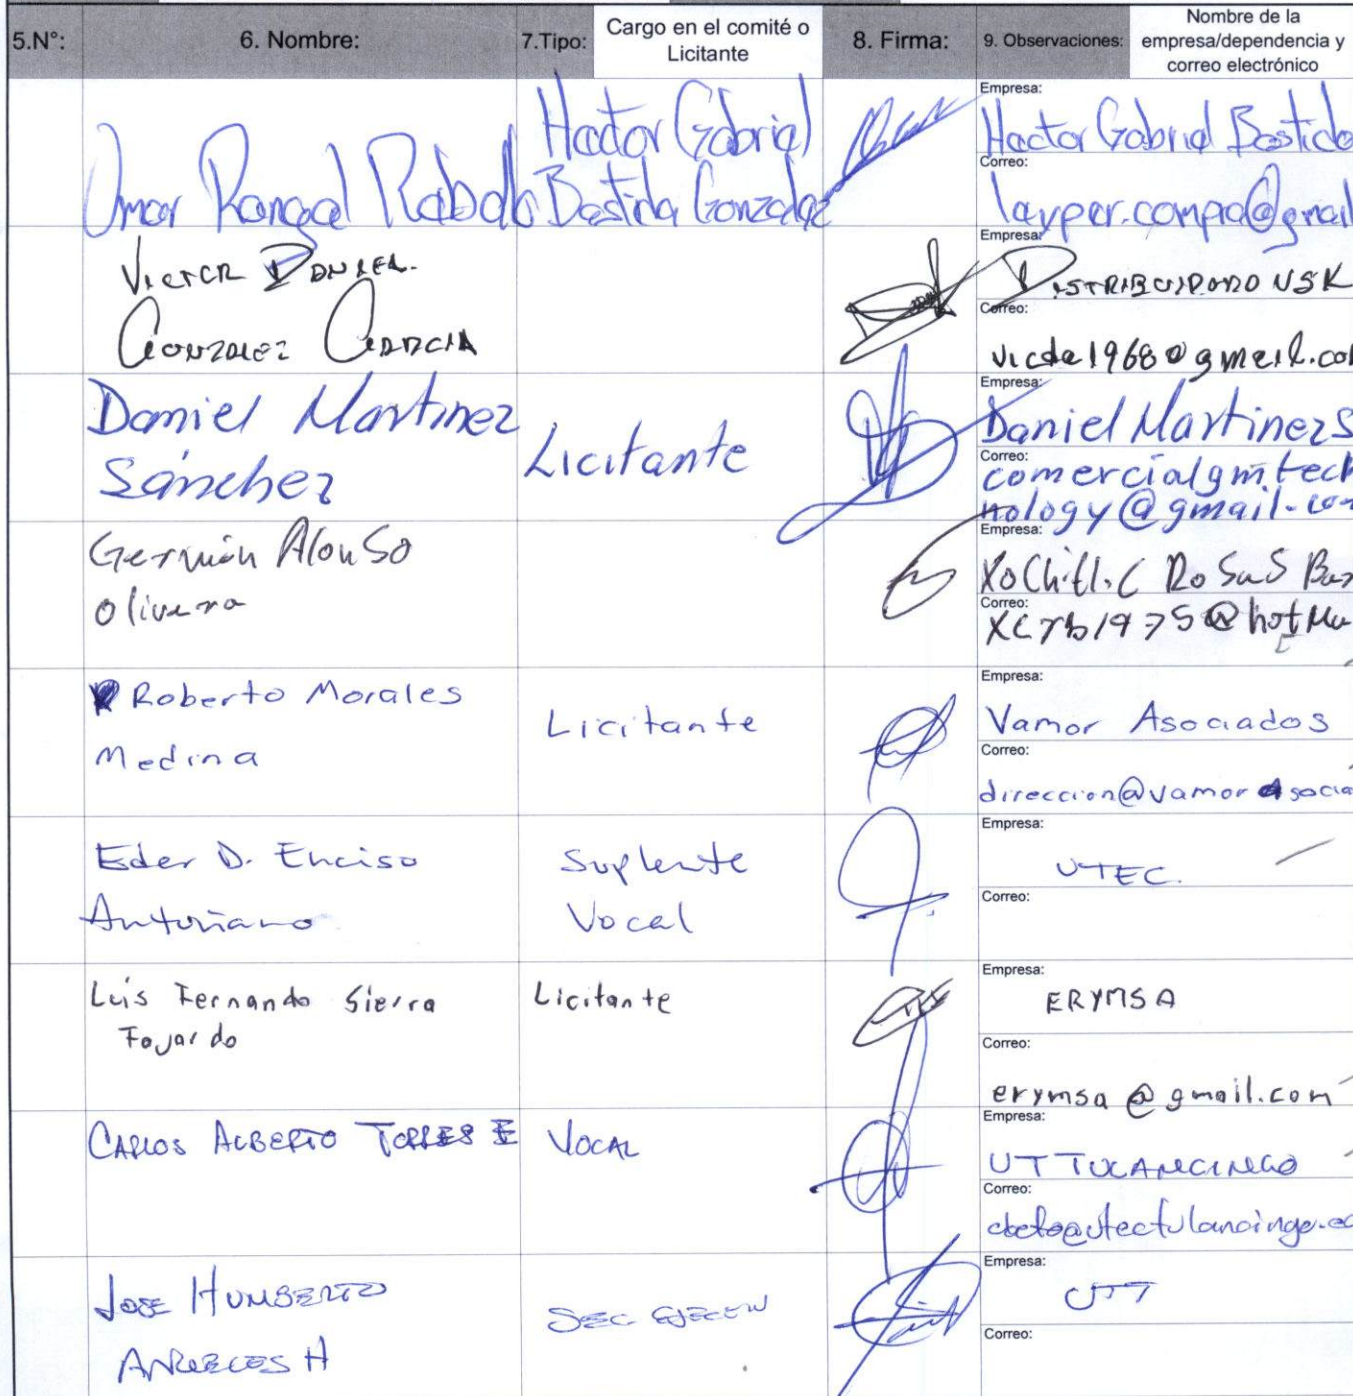 5.N°: 6. Nombre: 7.Tipo: Cargo en el comité o Licitante 8. Firma: 9. Observaciones: Nombre de la empresa/dependencia y correo electrónico
Omar Rangel Hector Gabriel Bastida Gonzalez
Empresa: Hector Gabriel Bastida
Correo: @gmail
Victor Daniel
Gonzalez Garcia
Empresa:
Correo: vicda1968@gmail.co
Daniel Martinez
Sánchez
Licitante
Empresa: Daniel Martinez S
Correo: comercialgm.tech
nology@gmail.com
Germán Alonso
Olivera
Empresa: Xochitl.C Rosas
Correo: xcrb1975@hotma
Roberto Morales
Medina
Licitante
Empresa: Vamor Asociados
Correo: direccion@vamorasocia
Eder D. Enciso
Suplente
Vocal
Empresa: UTEC.
Correo:
Luis Fernando Sierra
Fajardo
Licitante
Empresa: ERYMSA
Correo: erymsa@gmail.com
CARLOS ALBERTO TORRES E
VOCAL
Empresa: UT TULANCINGO
Correo:
JOSE HUMBERTO
Empresa: UTT
Correo: